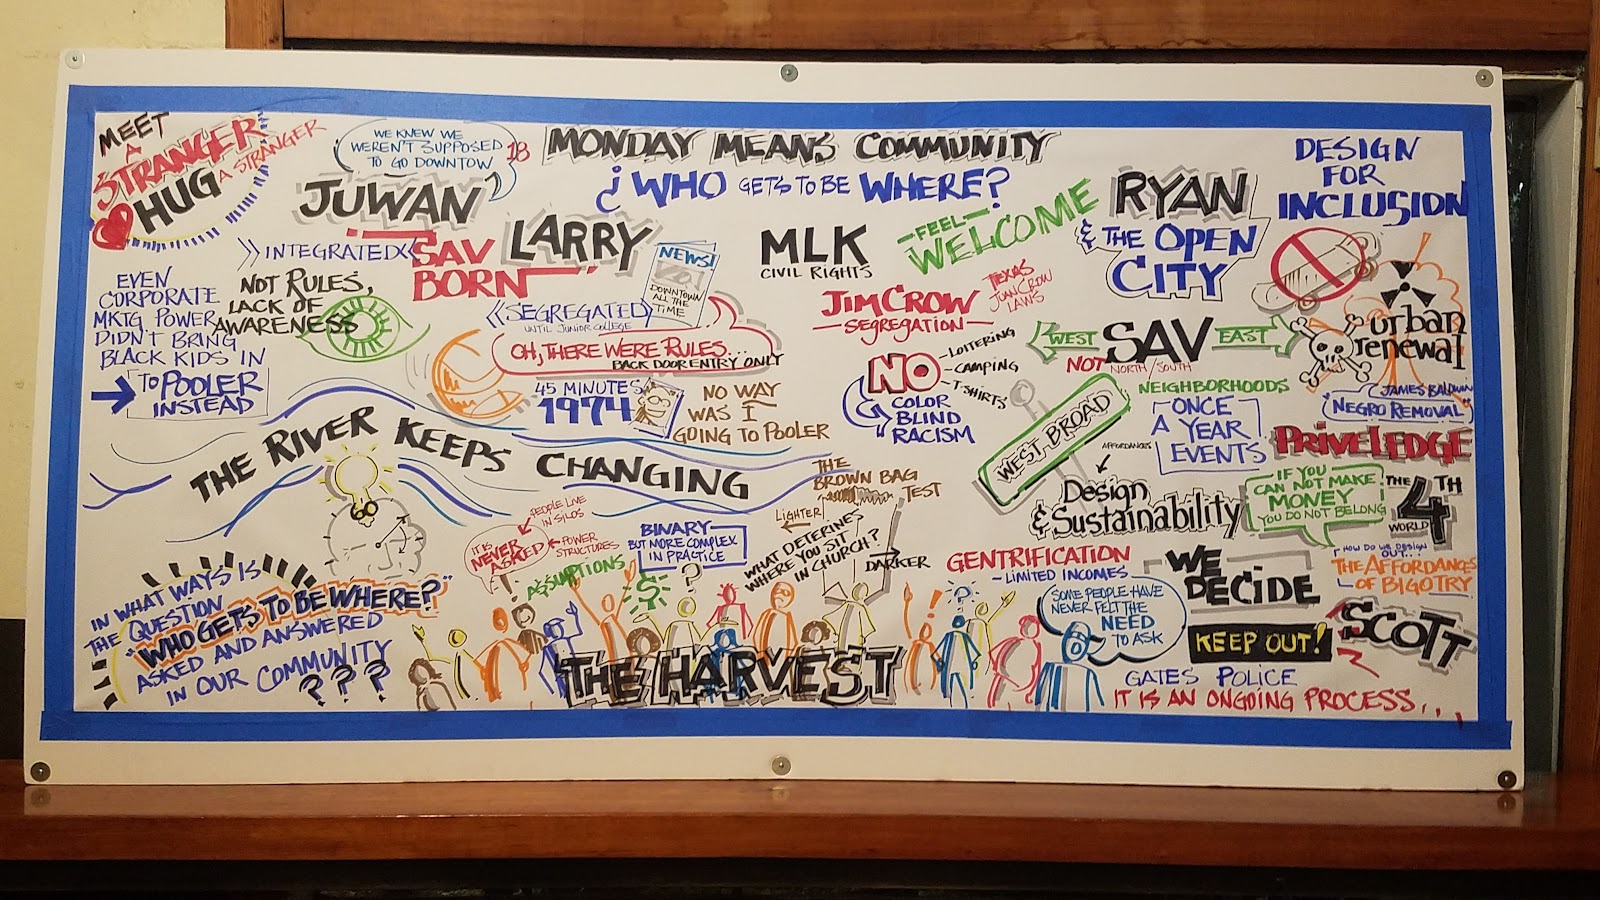 MEET
A
STRANGER
HUG
A STRANGER
WE KNEW WE
WEREN'T SUPPOSED
TO GO DOWNTOW
18
MONDAY MEANS COMMUNITY
¿WHO GETS TO BE WHERE?
DESIGN
FOR
INCLUSION
JUWAN
SAV
BORN
LARRY
NEWS!
DOWNTOWN
ALL THE
TIME
MLK
CIVIL RIGHTS
-FEEL-
WELCOME
RYAN
& THE OPEN
CITY
INTEGRATED
NOT RULES,
LACK OF
AWARENESS
EVEN
CORPORATE
MKTG POWER
DIDN'T BRING
BLACK KIDS IN
TO POOLER
INSTEAD
SEGREGATED
UNTIL JUNIOR COLLEGE
OH, THERE WERE RULES...
BACK DOOR ENTRY ONLY
45 MINUTES
1974
NO WAY
WAS I
GOING TO POOLER
JIM CROW
-SEGREGATION-
TEXAS
JUAN CROW
LAWS
NO
-LOITERING
-CAMPING
-T-SHIRTS
COLOR
BLIND
RACISM
WEST
SAV
EAST
NOT NORTH/SOUTH
NEIGHBORHOODS
urban
renewal
JAMES BALDWIN
"NEGRO REMOVAL"
ONCE
A YEAR
EVENTS
PRIVELEDGE
WEST BROAD
AFFORDANCES
Design
& Sustainability
IF YOU
CAN NOT MAKE
MONEY
YOU DO NOT BELONG
THE
4TH
WORLD
THE RIVER KEEPS CHANGING
THE
BROWN BAG
TEST
LIGHTER
DARKER
WHAT DETERMINES
WHERE YOU SIT
IN CHURCH?
PEOPLE LIVE
IN SILOS
IT IS
NEVER
ASKED
POWER
STRUCTURES
ASSUMPTIONS
BINARY
BUT MORE COMPLEX
IN PRACTICE
GENTRIFICATION
-LIMITED INCOMES-
WE
DECIDE
HOW DO WE DESIGN
OUT...
THE AFFORDANCES
OF BIGOTRY
SOME PEOPLE HAVE
NEVER FELT THE
NEED
TO ASK
KEEP OUT!
SCOTT
GATES POLICE
IT IS AN ONGOING PROCESS...
IN WHAT WAYS IS
THE QUESTION
"WHO GETS TO BE WHERE?"
ASKED AND ANSWERED
IN OUR COMMUNITY
? ? ?
THE HARVEST